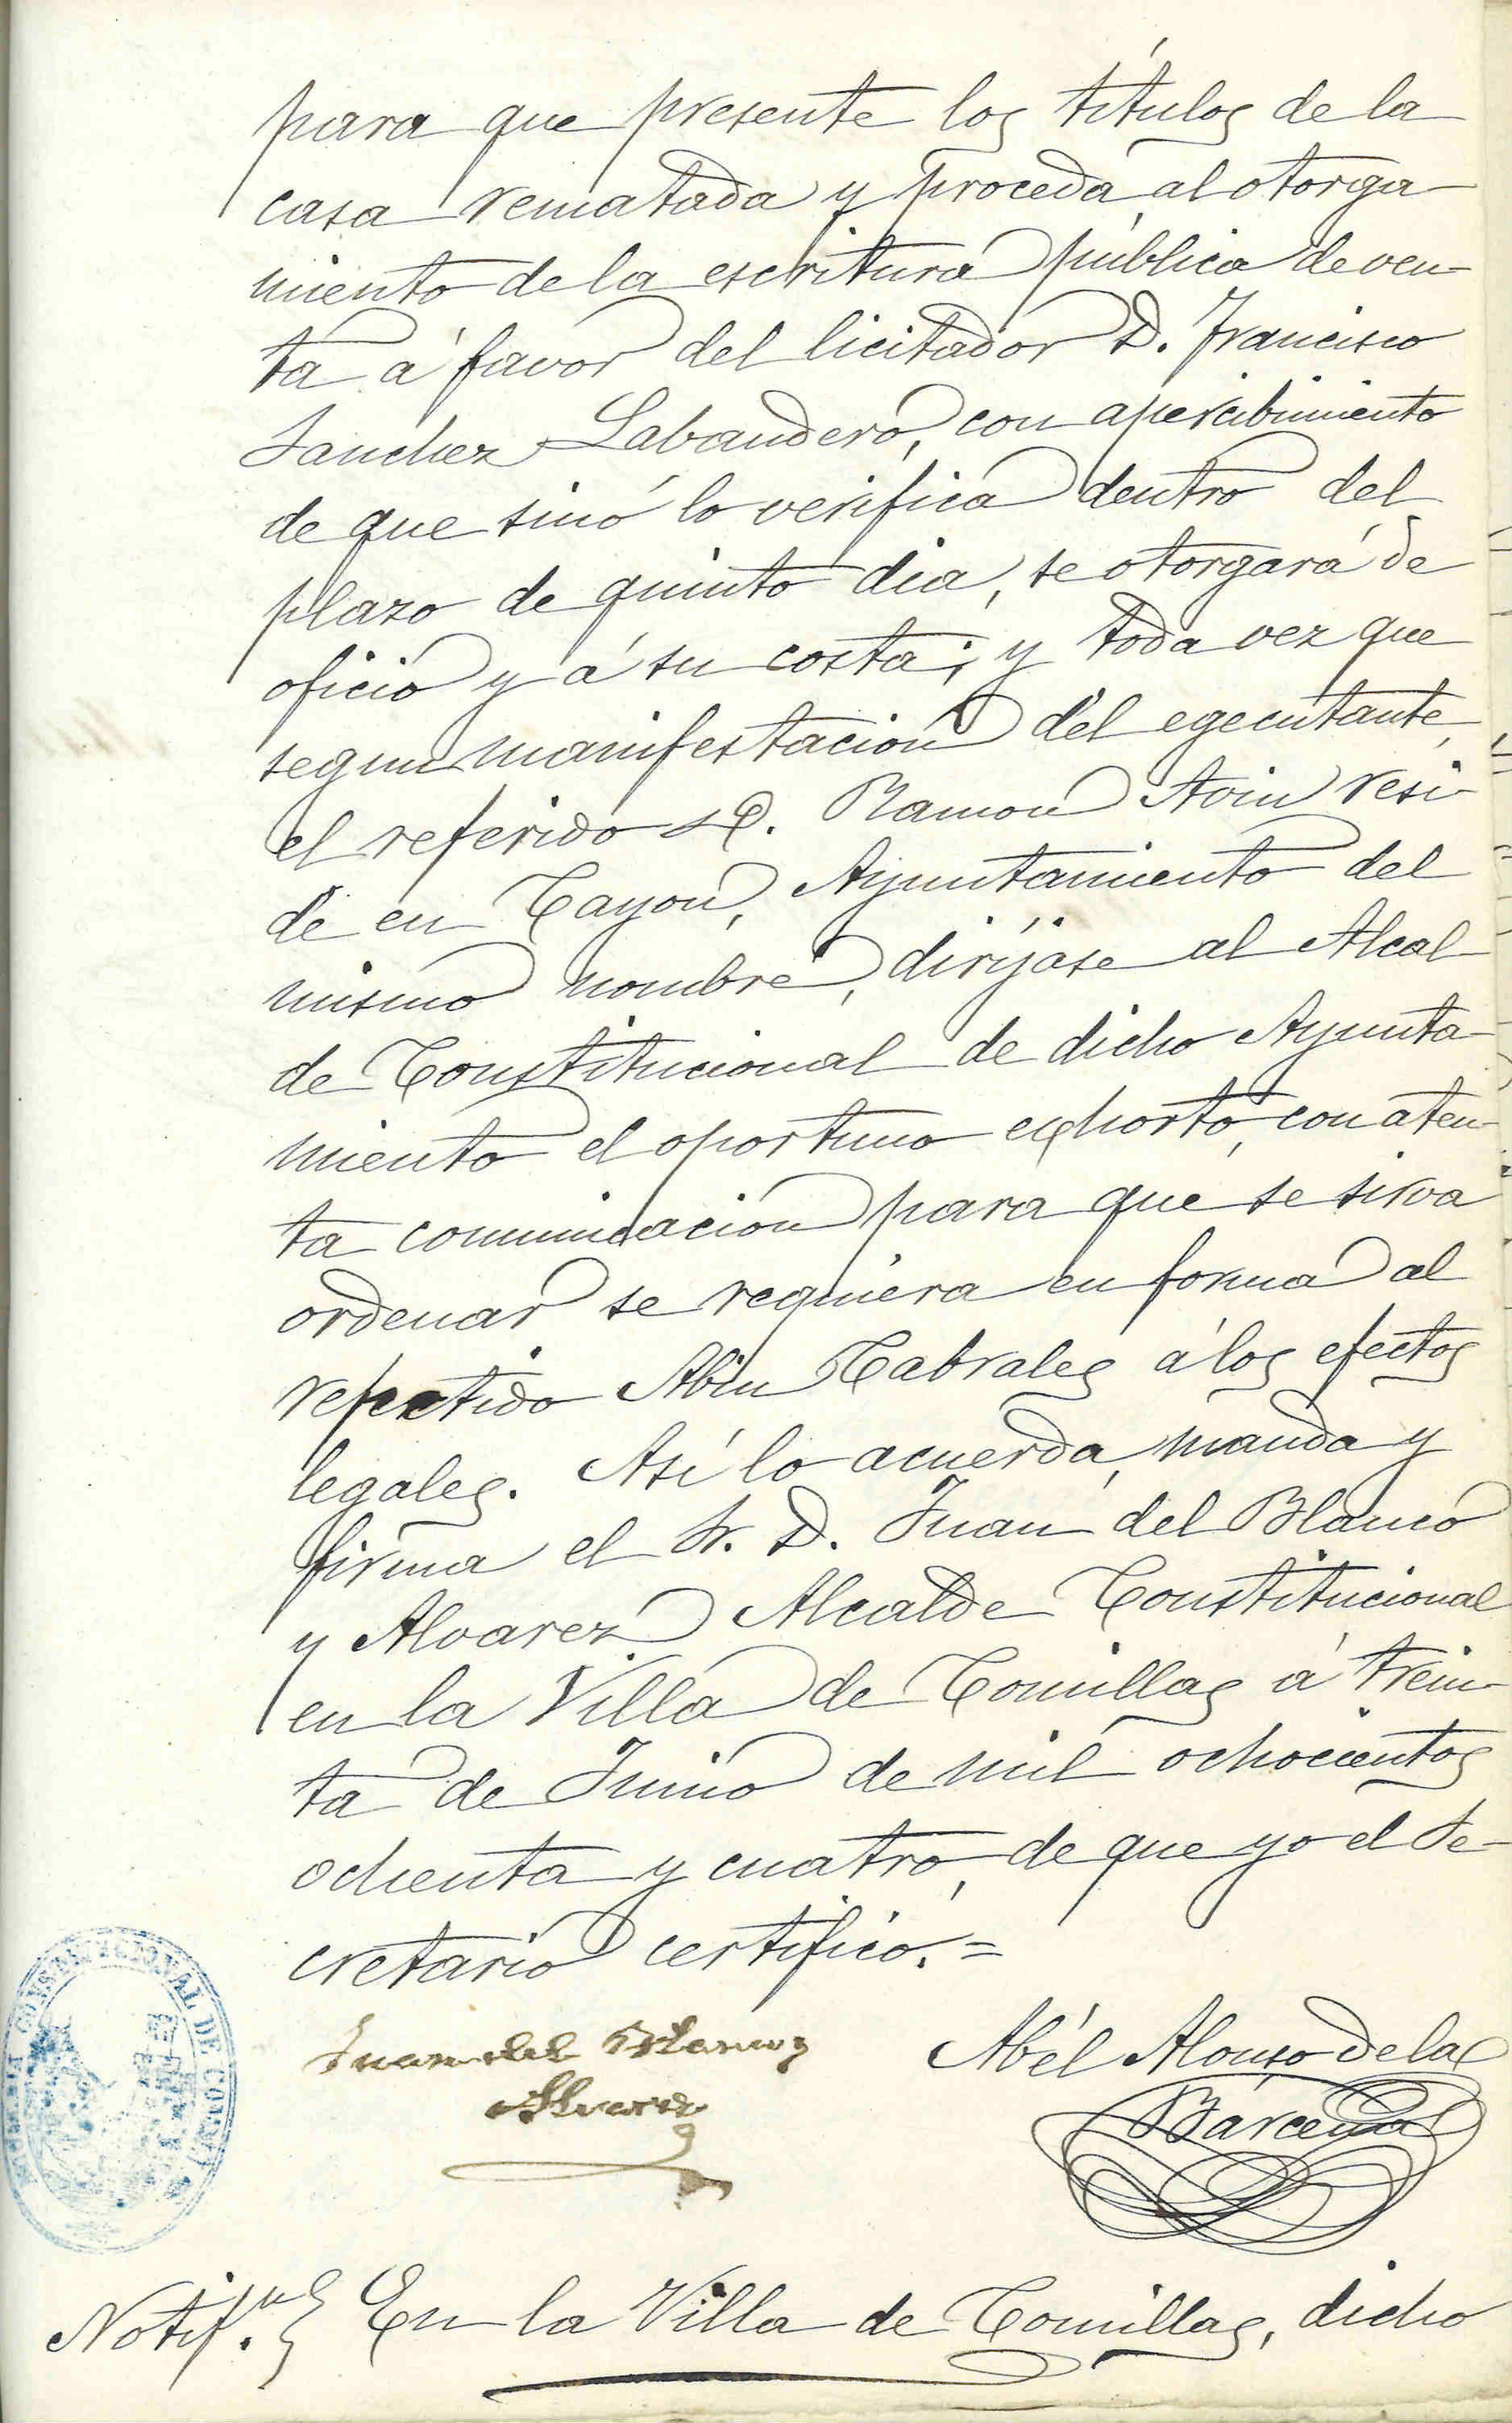 para que presente los títulos de la
casa rematada y proceda al otorga
miento de la escritura pública de ven-
ta á favor del licitador D. Francisco
Sanchez Labandero, con apercibimiento
de que sinó lo verifica dentro del
plazo de quinto dia, se otorgará de
oficio y á su costa; y toda vez que
segun manifestacion del egecutante,
el referido D. Ramon Avin resi-
de en Cayon, Ayuntamiento del
mismo nombre, dirijase al Alcal-
de Constitucional de dicho Ayunta-
miento el oportuno exhorto, con aten-
ta comunicacion para que se sirva
ordenar se requiera en forma al
repetido Abin Cabrales á los efectos
legales. Así lo acuerda, manda y
firma el Sr. D. Juan del Blanco
y Alvarez Alcalde Constitucional
en la Villa de Comillas á trein-
ta de Junio de mil ochocientos
ochenta y cuatro, de que yo el Se-
cretario certifico.=
Juan del Blanco Abél Alonso de la
Alvarez Barcena
CONSTITUCIONAL DE COMILLAS
Notif.ⁿ En la Villa de Comillas, dicho